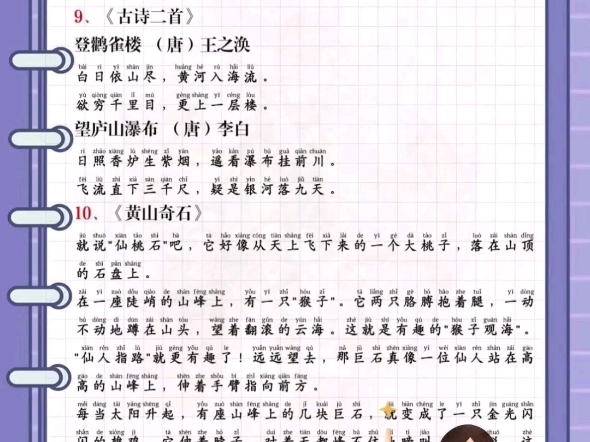 9、《古诗二首》
登鹳雀楼 （唐）王之涣
bái rì yī shān jìn huáng hé rù hǎi liú
白日依山尽，黄河入海流。
yù qióng qiān lǐ mù gèng shàng yì céng lóu
欲穷千里目，更上一层楼。
望庐山瀑布 （唐）李白
rì zhào xiāng lú shēng zǐ yān yáo kàn pù bù guà qián chuān
日照香炉生紫烟，遥看瀑布挂前川。
fēi liú zhí xià sān qiān chǐ yí shì yín hé luò jiǔ tiān
飞流直下三千尺，疑是银河落九天。
10、《黄山奇石》
jiù shuō xiān táo shí ba tā hǎo xiàng cóng tiān shàng fēi xià lái de yí gè dà táo zi luò zài shān dǐng
就说"仙桃石"吧，它好像从天上飞下来的一个大桃子，落在山顶
de shí pán shàng
的石盘上。
zài yí zuò dǒu qiào de shān fēng shàng yǒu yì zhī hóu zi tā liǎng zhī gē bo bào zhe tuǐ yí dòng
在一座陡峭的山峰上，有一只"猴子"。它两只胳膊抱着腿，一动
bú dòng de dūn zài shān tóu wàng zhe fān gǔn de yún hǎi zhè jiù shì yǒu qù de hóu zi guān hǎi
不动地蹲在山头，望着翻滚的云海。这就是有趣的"猴子观海"。
xiān rén zhǐ lù jiù gèng yǒu qù le yuǎn yuǎn wàng qù nà jù shí zhēn xiàng yí wèi xiān rén zhàn zài gāo
"仙人指路"就更有趣了！远远望去，那巨石真像一位仙人站在高
gāo de shān fēng shàng shēn zhe shǒu bì zhǐ xiàng qián fāng
高的山峰上，伸着手臂指向前方。
měi dāng tài yáng shēng qǐ yǒu zuò shān fēng shàng de jǐ kuài jù shí jiù biàn chéng le yì zhī jīn guāng shǎn
每当太阳升起，有座山峰上的几块巨石，就变成了一只金光闪